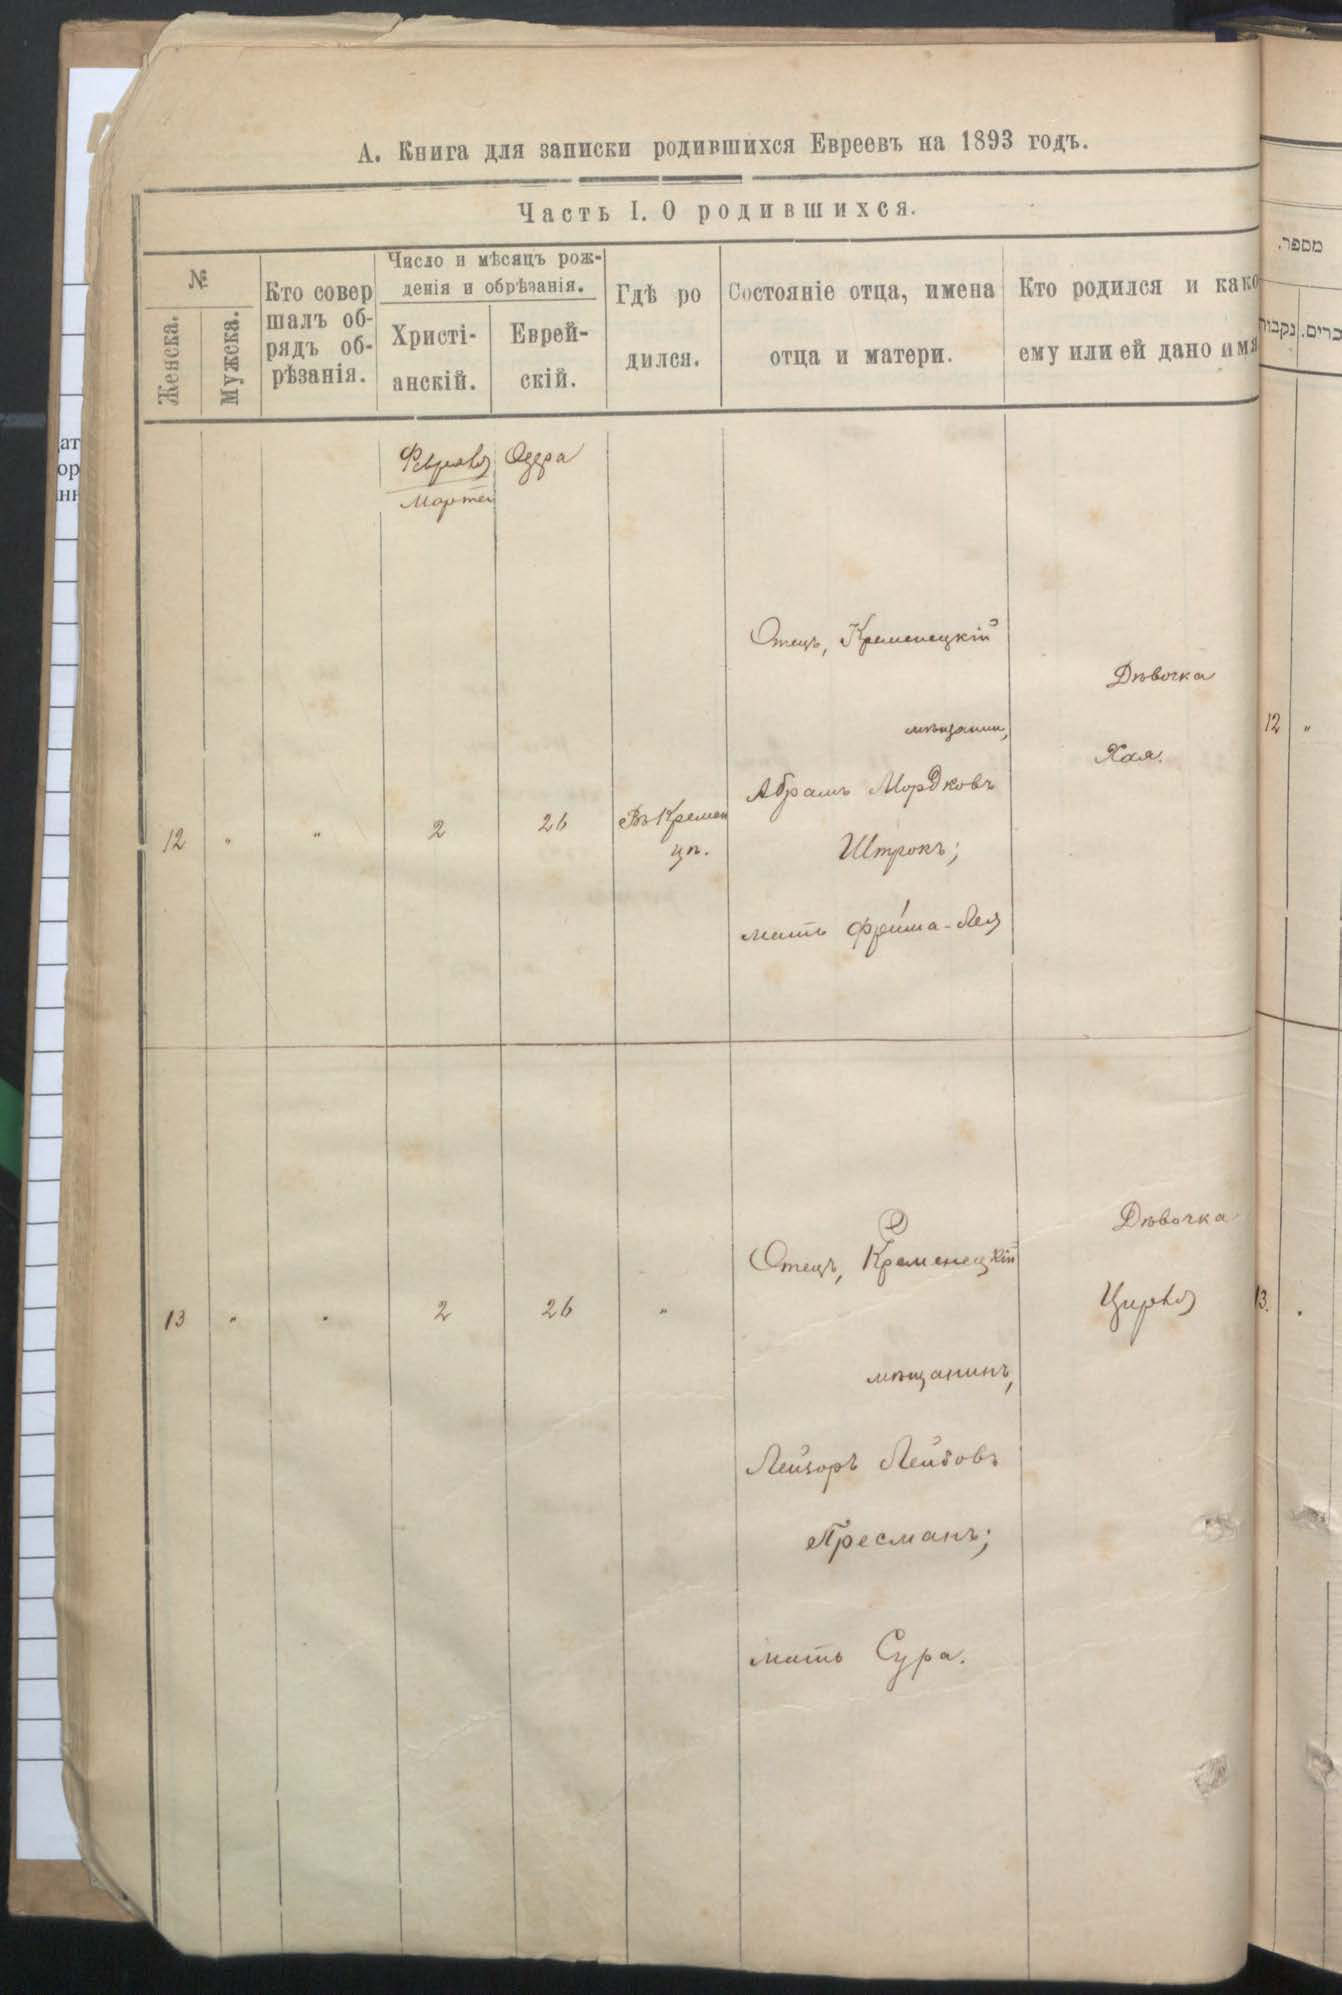 А. Книга для записки родившихся Евреевъ на 1893 годъ.
Часть I. О родившихся.
№
Женска.
Мужска.
Кто совер
шалъ об-
рядъ об-
рѣзанія.
Число и мѣсяцъ рож-
денія и обрѣзанія.
Христі-
анскій.
Еврей-
скій.
Гдѣ ро
дился.
Состояніе отца, имена
отца и матери.
Кто родился и како
ему или ей дано имя
מספר.
נקבות
כרים.
ат
ор
нн
Февраля
Марта
Одера
12 " " 2 26
Въ Кремен
цѣ.
Отецъ, Кременецкій
мѣщанин,
Абрамъ Мордковъ
Штрокъ;
мать Фрима-Лея
Дѣвочка
Хая.
12 "
13 " " 2 26 "
Отецъ, Кременецкій
мѣщанинъ,
Лейзоръ Лейбовъ
Пресманъ;
мать Сура.
Дѣвочка
Цирля
13. "